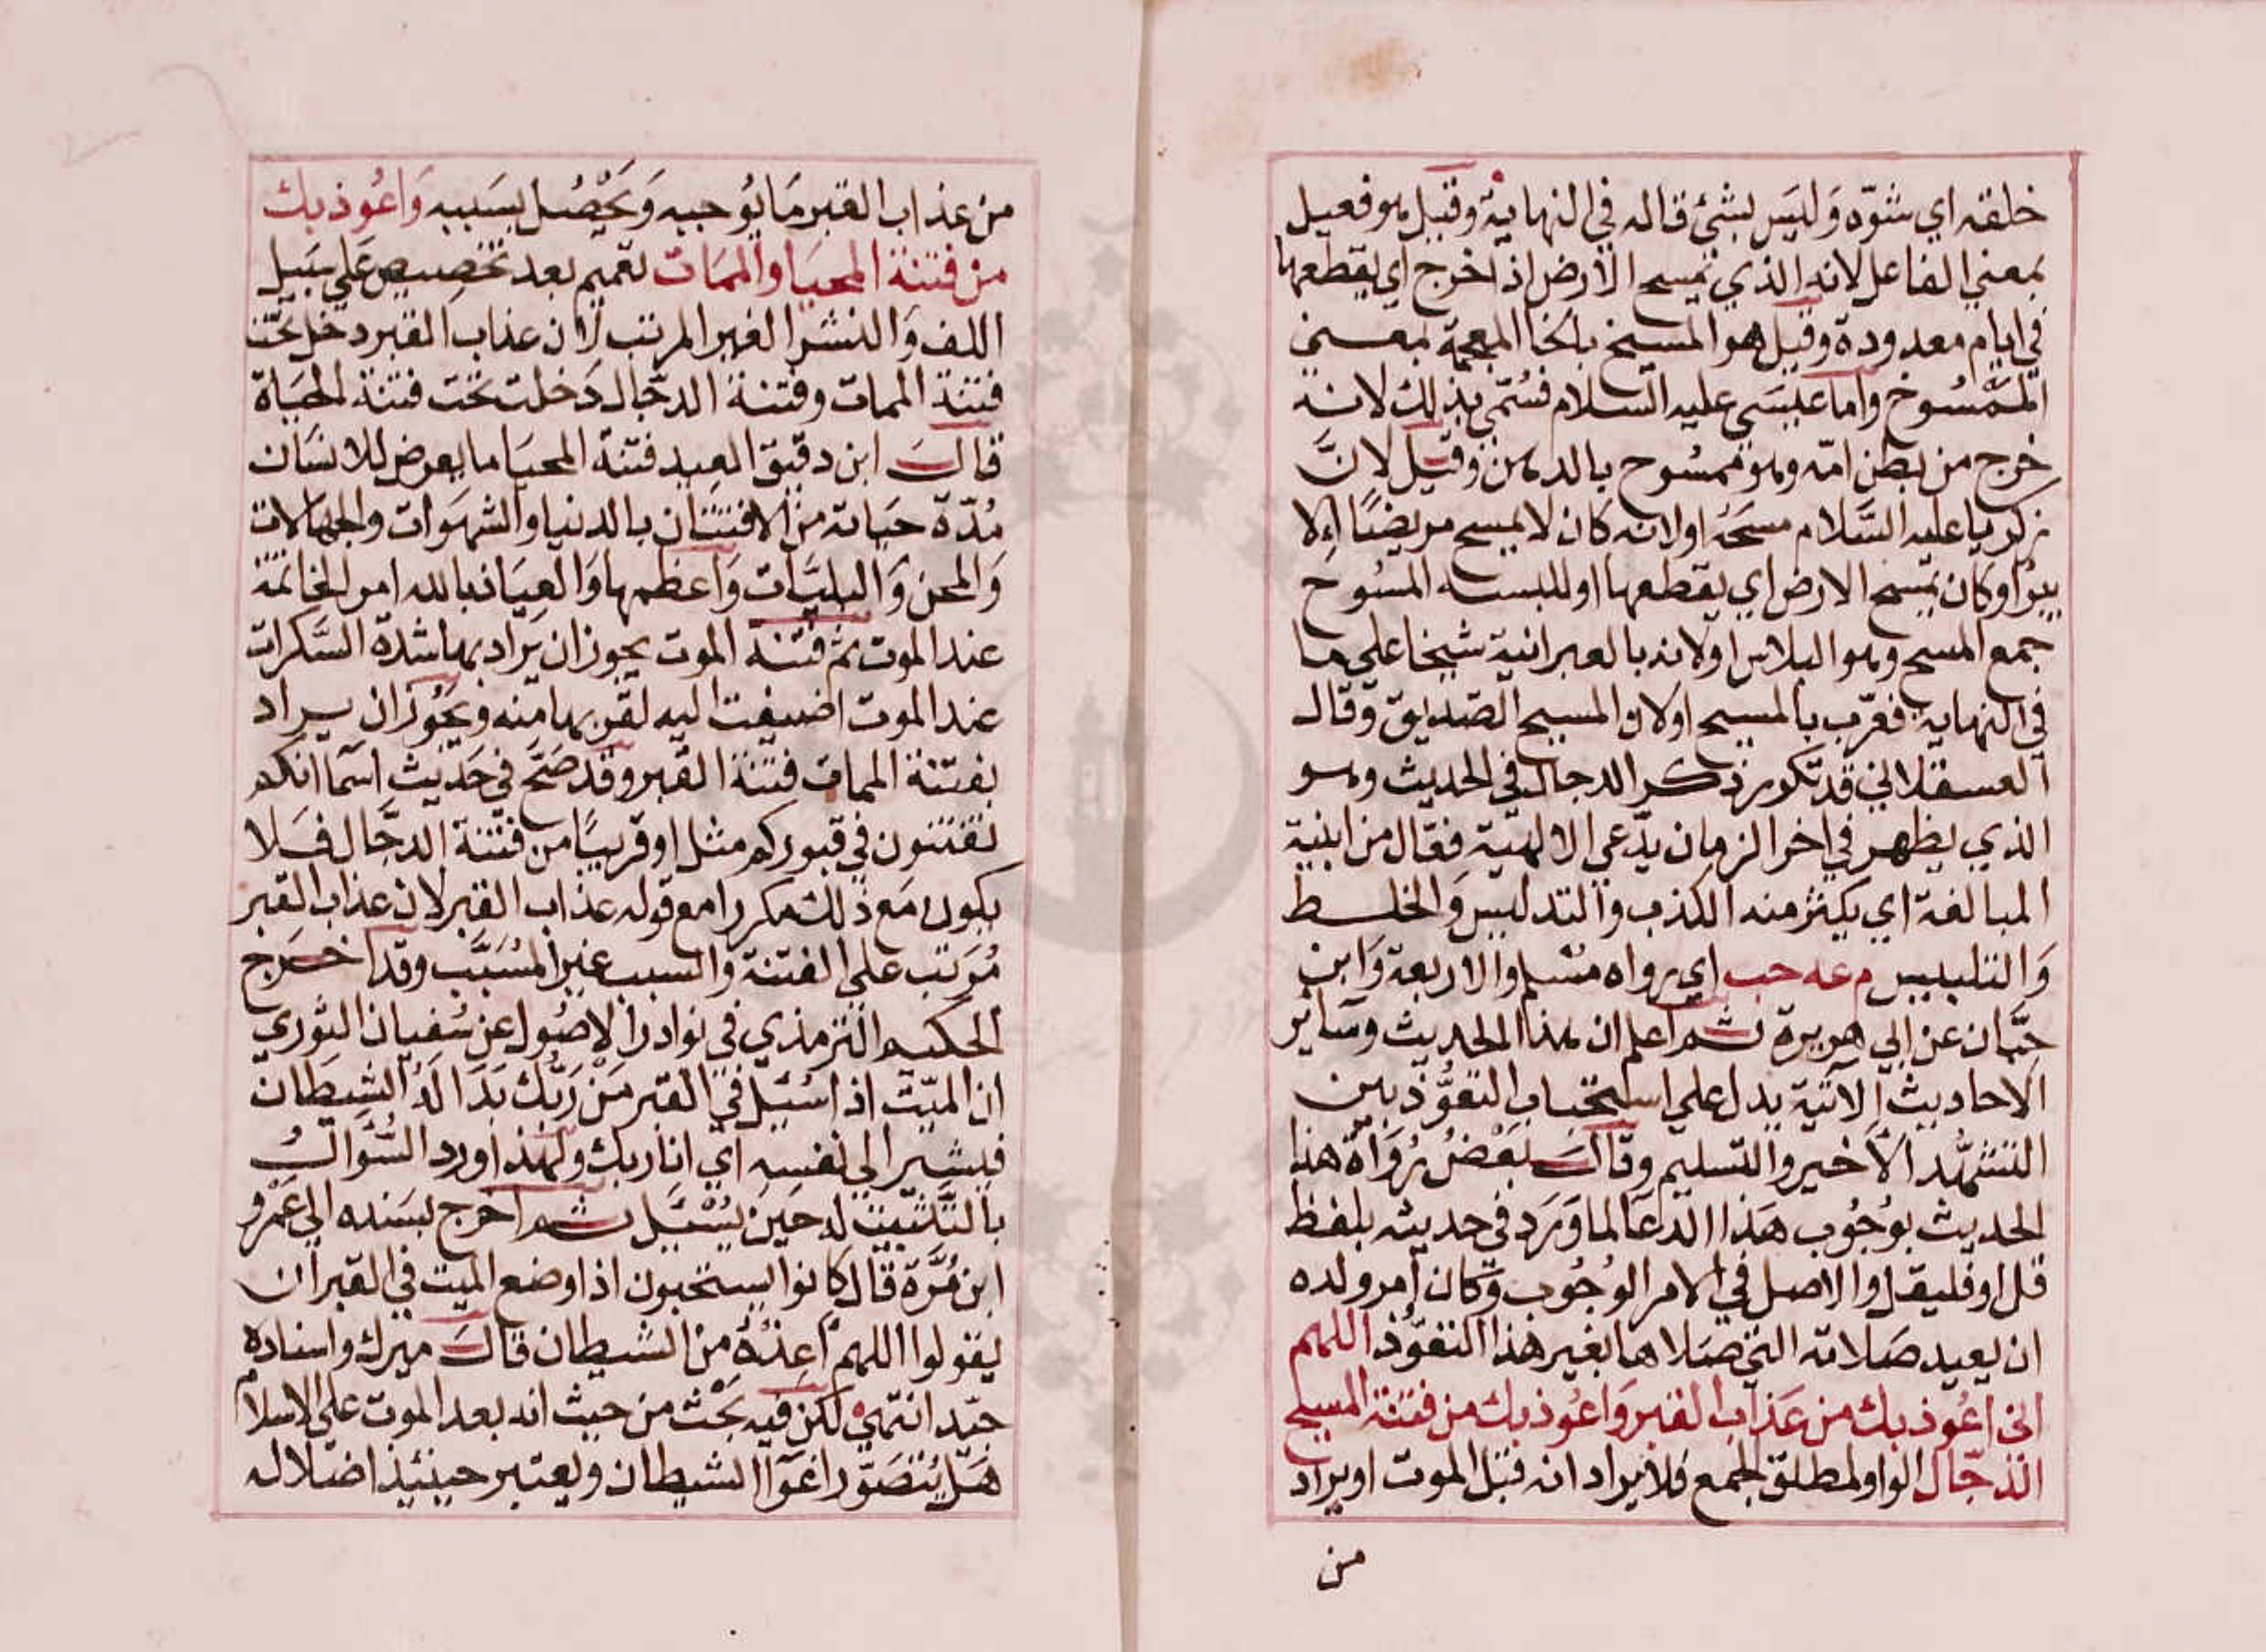 خلقه اي شوّه وَليَس بشئ قاله في النهاية وقيل هو فعيل
بمعني الفاعل لانه الذي يمسح الارض اذا خرج اي يقطعها
في ايام معدودة وقيل هو المسيخ بالخا المعجمة بمعسني
الممَسُوخ واما عيسَى عليه السلام فسُمّي بذلك لانه
خرج من بطن امّه وهو ممسُوح بالدهن وقيل لانَّ
زكريا عليه السَّلام مسَحَهُ اولانه كان لا يمسح مريضًا اِلا
يبرُ اوكان يمسح الارض اي يقطعها او للبسه المسُوح
جمع المسح وهو البلاس اولانه بالعبرانية شيخا علي ما
في النهاية فعرّب بالمسيح اولان المسيح الصّديق وقال
العسقلاني قد تكرر ذكر الدجال في الحديث وهو
الذي يظهر في اخر الزمان يدّعي الالهيّة فعّال من ابنية
المبالغة اي يكثر منه الكذب والتدليس وَالخلسط
وَالتلبيس م عه حب اي رواه مسُلم والاربعة وَابن
حبّان عن ابي هريرة ثم اعلم ان هذا الحديث وسَائر
الاحاديث الآتية يدل علي استحباب التعوُّذ بين
التشهُّد الاَخير والتسليم وقالَ بعَضُ رُوَاة هذا
الحديث بوُجُوب هَذا الدعَا لما وَرَد في حديثه بلفظ
قل او فليقل والاصل في الامر الوُجُوب وَكان أمر ولده
ان يعيد صَلاته التي صَلاها بغير هذا التعوّذ اللهم
اني اعُوذ بك من عَذاب القبر وَاعُوذ بك من فتنة المسيح
الدّجال الواو لمطلق الجمع فلا يراد انه قبل الموت او يراد
من
من عذاب القبر مَا يُوجبه وَيَحْصُل بسَببه وَاعُوذ بك
من فتنة المحيَا والممَات تعميم بعد تخصيص عَلي سَبيل
اللف وَالنشر الغير المرتب لان عذاب القبر دخل تحت
فتنة الممات وفتنة الدجّال دَخلت تحت فتنة الحيَاة
قالَ ابن دقيق العيد فتنة المحيَا ما يعرض للانسَان
مُدّة حيَاته من الافتتان بالدنيا والشهوَات والجهالات
وَالمحن وَالبليَّات وَاعظمها وَالعِيَاذ بالله امر الخاتمة
عند الموت ثم فتنة الموت يجوز ان يَراد بها شدة السَّكرات
عند الموت اضيفت اليه لقربها منه ويَجُوز ان يراد
بفتنة الممات فتنة القبر وقد صَحّ في حَديث اسَما انكم
تفتنون في قبوركم مثل او قريبًا من فتنة الدجَّال فَلا
يكون مَع ذلك مكررا مع قوله عذاب القبر لان عذاب القبر
مُرَتب علي الفتنة والسبب غير المسُبَّب وقد اخرَج
الحكيم الترمذي في نوادر الاصُول عن سُفيان الثوري
ان الميّت اذا سُئل في القبر مَنْ رَبّك بَدَا لَهُ الشيطان
فيشير الي نفسه اي انا ربك ولهذا اورد السُّؤال
بالتثبيت له حَين يُسْئَل ثم اخرج بسَنده الي عَمْرو
ابن مُرَّة قال كانوا يستحبون اذا وضع الميت في القبر ان
يقولوا اللهم اعِذْهُ من الشيطان قالَ ميرك واسناده
جيّد انتهي لكن فيه بَحْث من حيث انه بعد الموت علي الاسلام
هَل يُتصَوّر اغوَا الشيطان ويعتبر حينئذ اضلاله